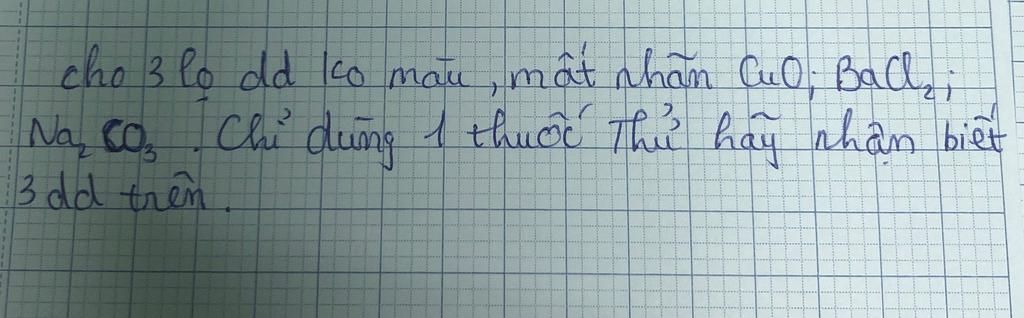 cho 3 lọ dd ko màu, mất nhãn CuO; BaCl₂;
Na₂CO₃. Chỉ dùng 1 thuốc Thử hãy nhận biết
3 dd trên.